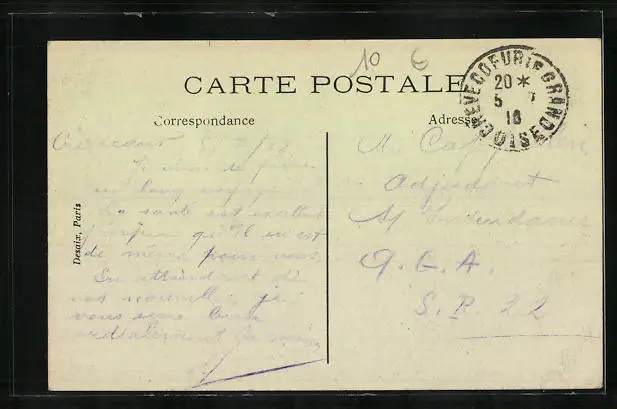 10 €
CARTE POSTALE
Correspondance
Adresse
CREVECOEUR LE GRAND
20 *
5
16
OISE
Desaix, Paris
M.
Je viens de faire
un long voyage
La santé est excellente
qu'il en est
de même pour vous.
En attendant de
vos nouvelles, je
vous serre bien
cordialement la main
Adjudant
d'Intendance
Q. G. A.
S. P. 22